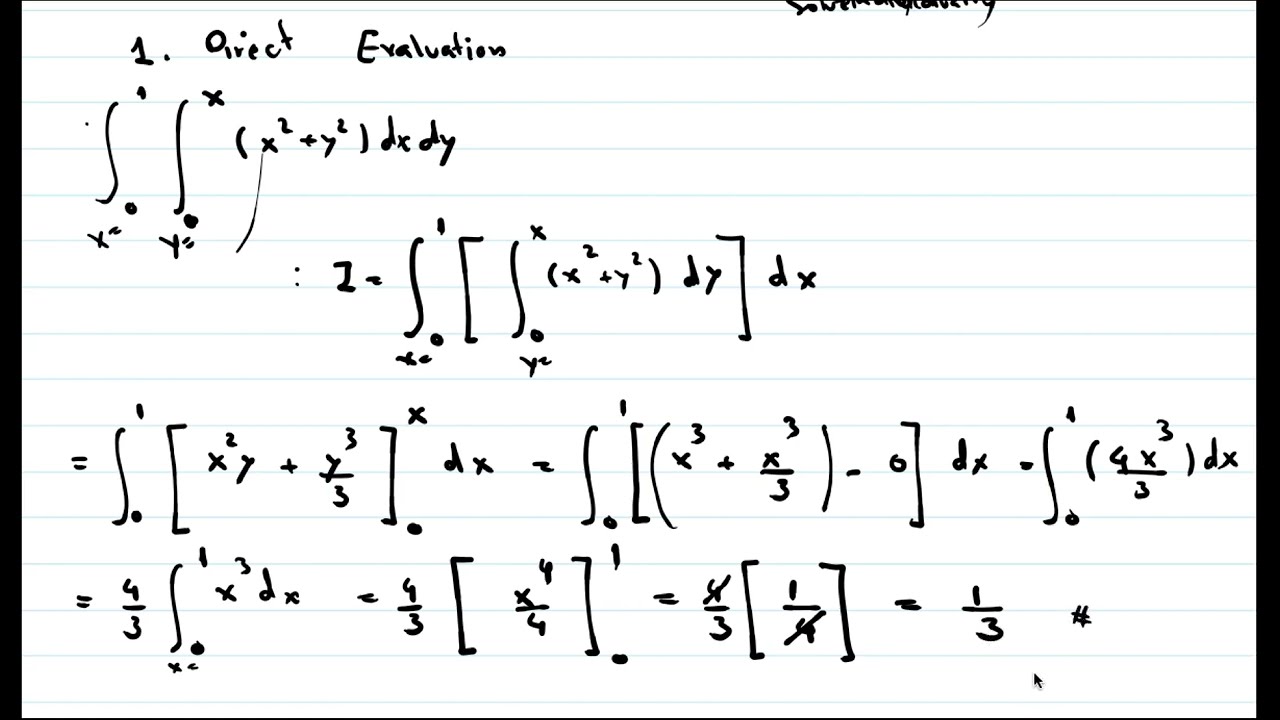 1. Direct Evaluation
∫_{x=0}^{1} ∫_{y=0}^{x} (x² + y²) dx dy
: I = ∫_{x=0}^{1} [ ∫_{y=0}^{x} (x² + y²) dy ] dx
= ∫_0^1 [ x²y + y³/3 ]_0^x dx = ∫_0^1 [ ( x³ + x³/3 ) - 0 ] dx = ∫_0^1 ( 4x³/3 ) dx
= 4/3 ∫_{x=0}^{1} x³ dx = 4/3 [ x⁴/4 ]_0^1 = 4/3 [ 1/4 ] = 1/3 #